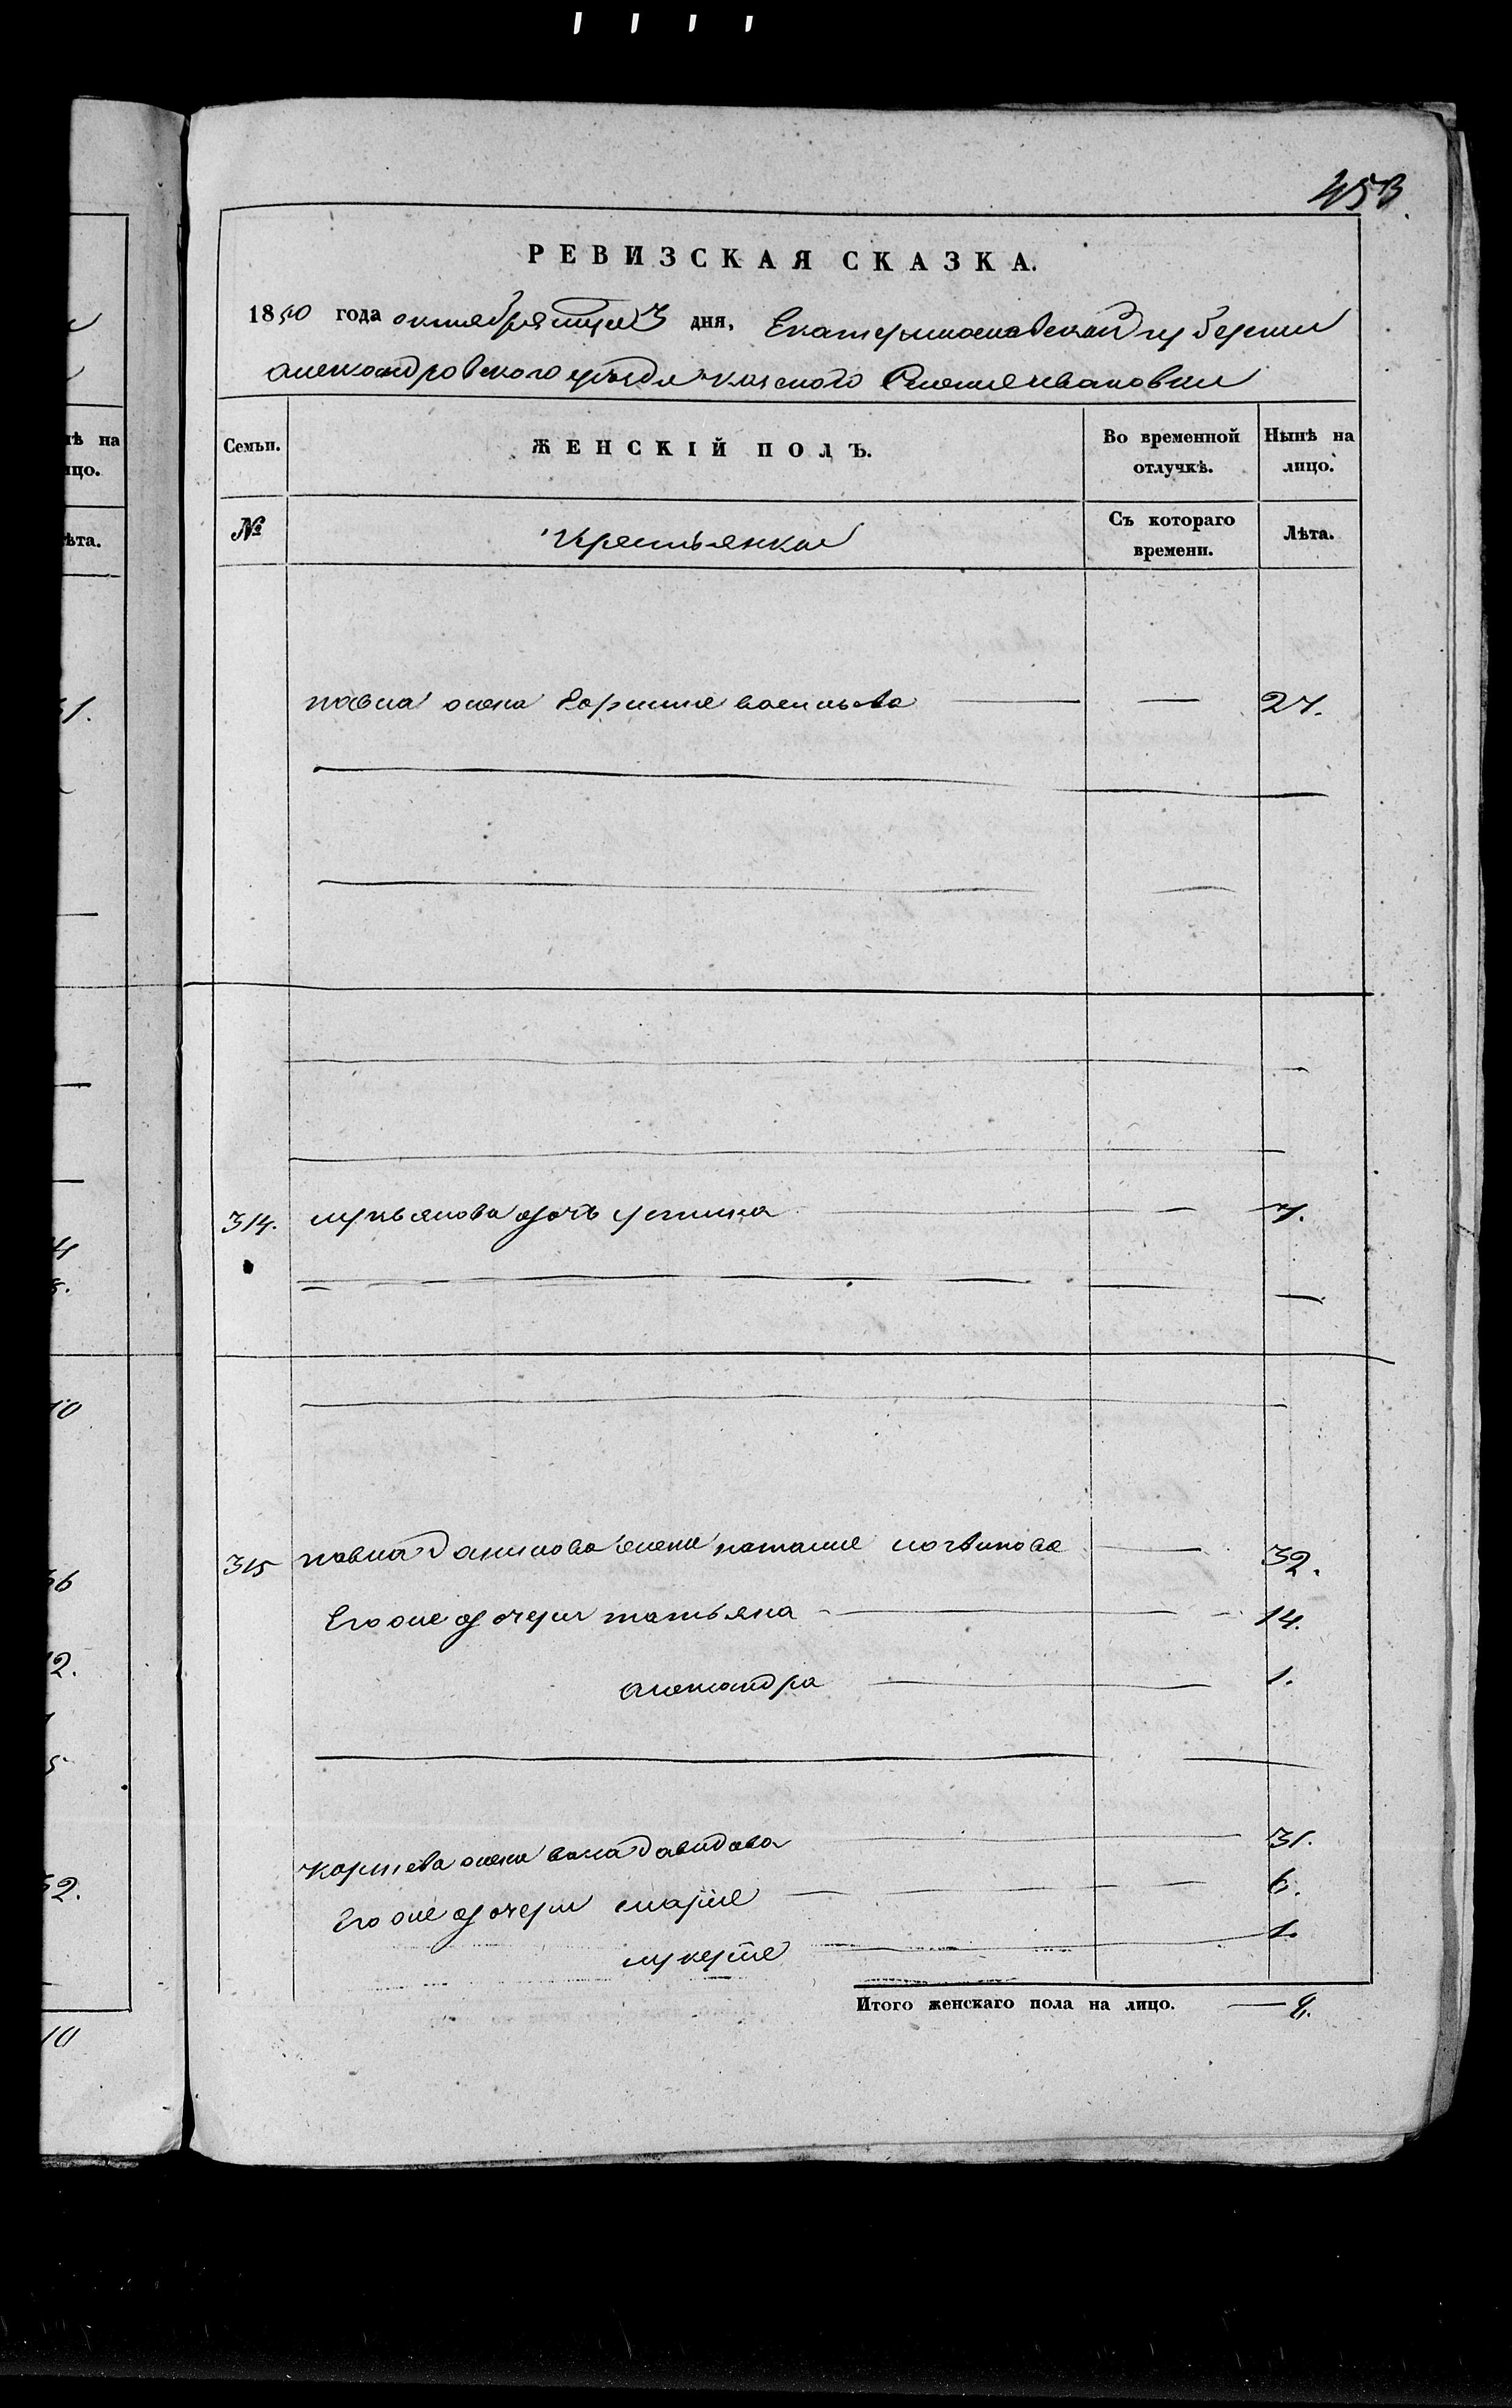 453.
РЕВИЗСКАЯ СКАЗКА.
1850 года октября 3 дня, Екатеринославской губернии
александровскаго уѣзда казеннаго
Семьи. ЖЕНСКІЙ ПОЛЪ. Во временной отлучкѣ. Нынѣ на лицо.
№ Крестьянки Съ котораго времени. Лѣта.
павла жена васильева — — 27.
314. лукьянова дочь устина — 7.
315 павла данилова жена наталия логвинова — 32.
Его же дочери татьяна — — 14.
александра — 1.
жена давидова — 31.
Его же дочери мария — — — 6.
лукерия — 1.
Итого женскаго пола на лицо. — 8.
ѣ на
ицо.
ѣта.
10
2.
10